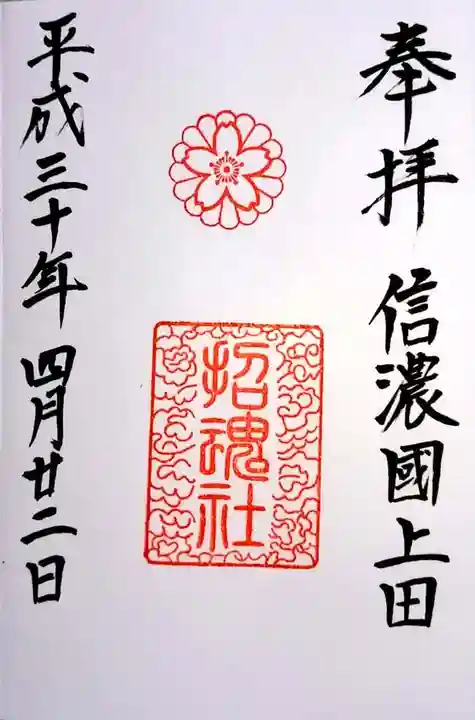 奉拝 信濃國上田
招魂社
平成三十年 四月廿二日